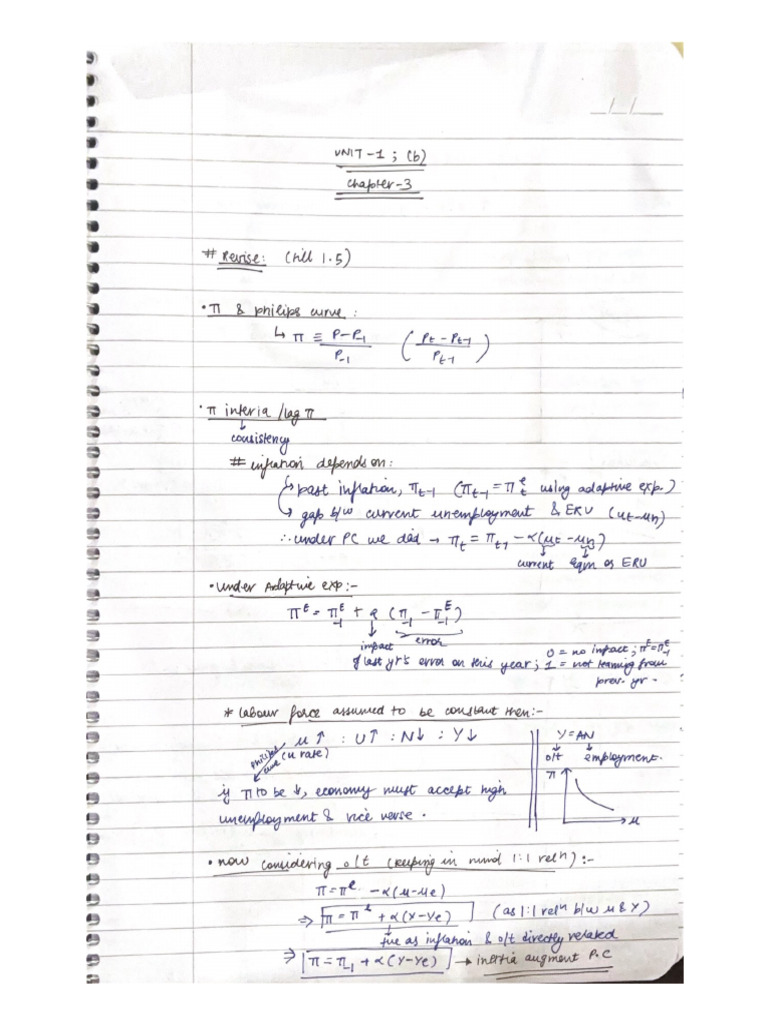 _/_/_
UNIT-1 ; (b)
Chapter-3
# Revise: (till 1.5)
• π & philips curve :
↳ π ≡ (P-P₋₁)/P₋₁ ((Pt - Pt-1)/Pt-1)
• π interia /lag π
↓
consistency
# inflation depends on:
↳ past inflation, πt-1 (πt-1 = πᵉt using adaptive exp.)
↳ gap b/w current unemployment & ERU (ut-un)
∴ under PC we did → πt = πt-1 - α(ut-un)
current eqm or ERU
• Under Adaptive exp:-
πᴱ = πᴱ₋₁ + a (π₋₁ - πᴱ₋₁)
impact error
of last yr's error on this year ; 0 = no impact ; πᴱ=πᴱ₋₁
1 = not learning from
prev. yr .
* labour force assumed to be constant then:-
u↑ : U↑ : N↓ : Y↓
(u rate)
Philips curve
if π to be ↓, economy must accept high
unemployment & vice verse .
Y = AN
↓ ↓
o/t employment.
π
u
• now considering o/t (keeping in mind 1:1 relⁿ) :-
π = πᵉ - α(u-ue)
⇒ π = πᵉ + α(Y-Ye) (as 1:1 relⁿ b/w u & Y)
↓
+ve as inflation & o/t directly related
⇒ π = π₋₁ + α(Y-Ye) → inertia augment P.C